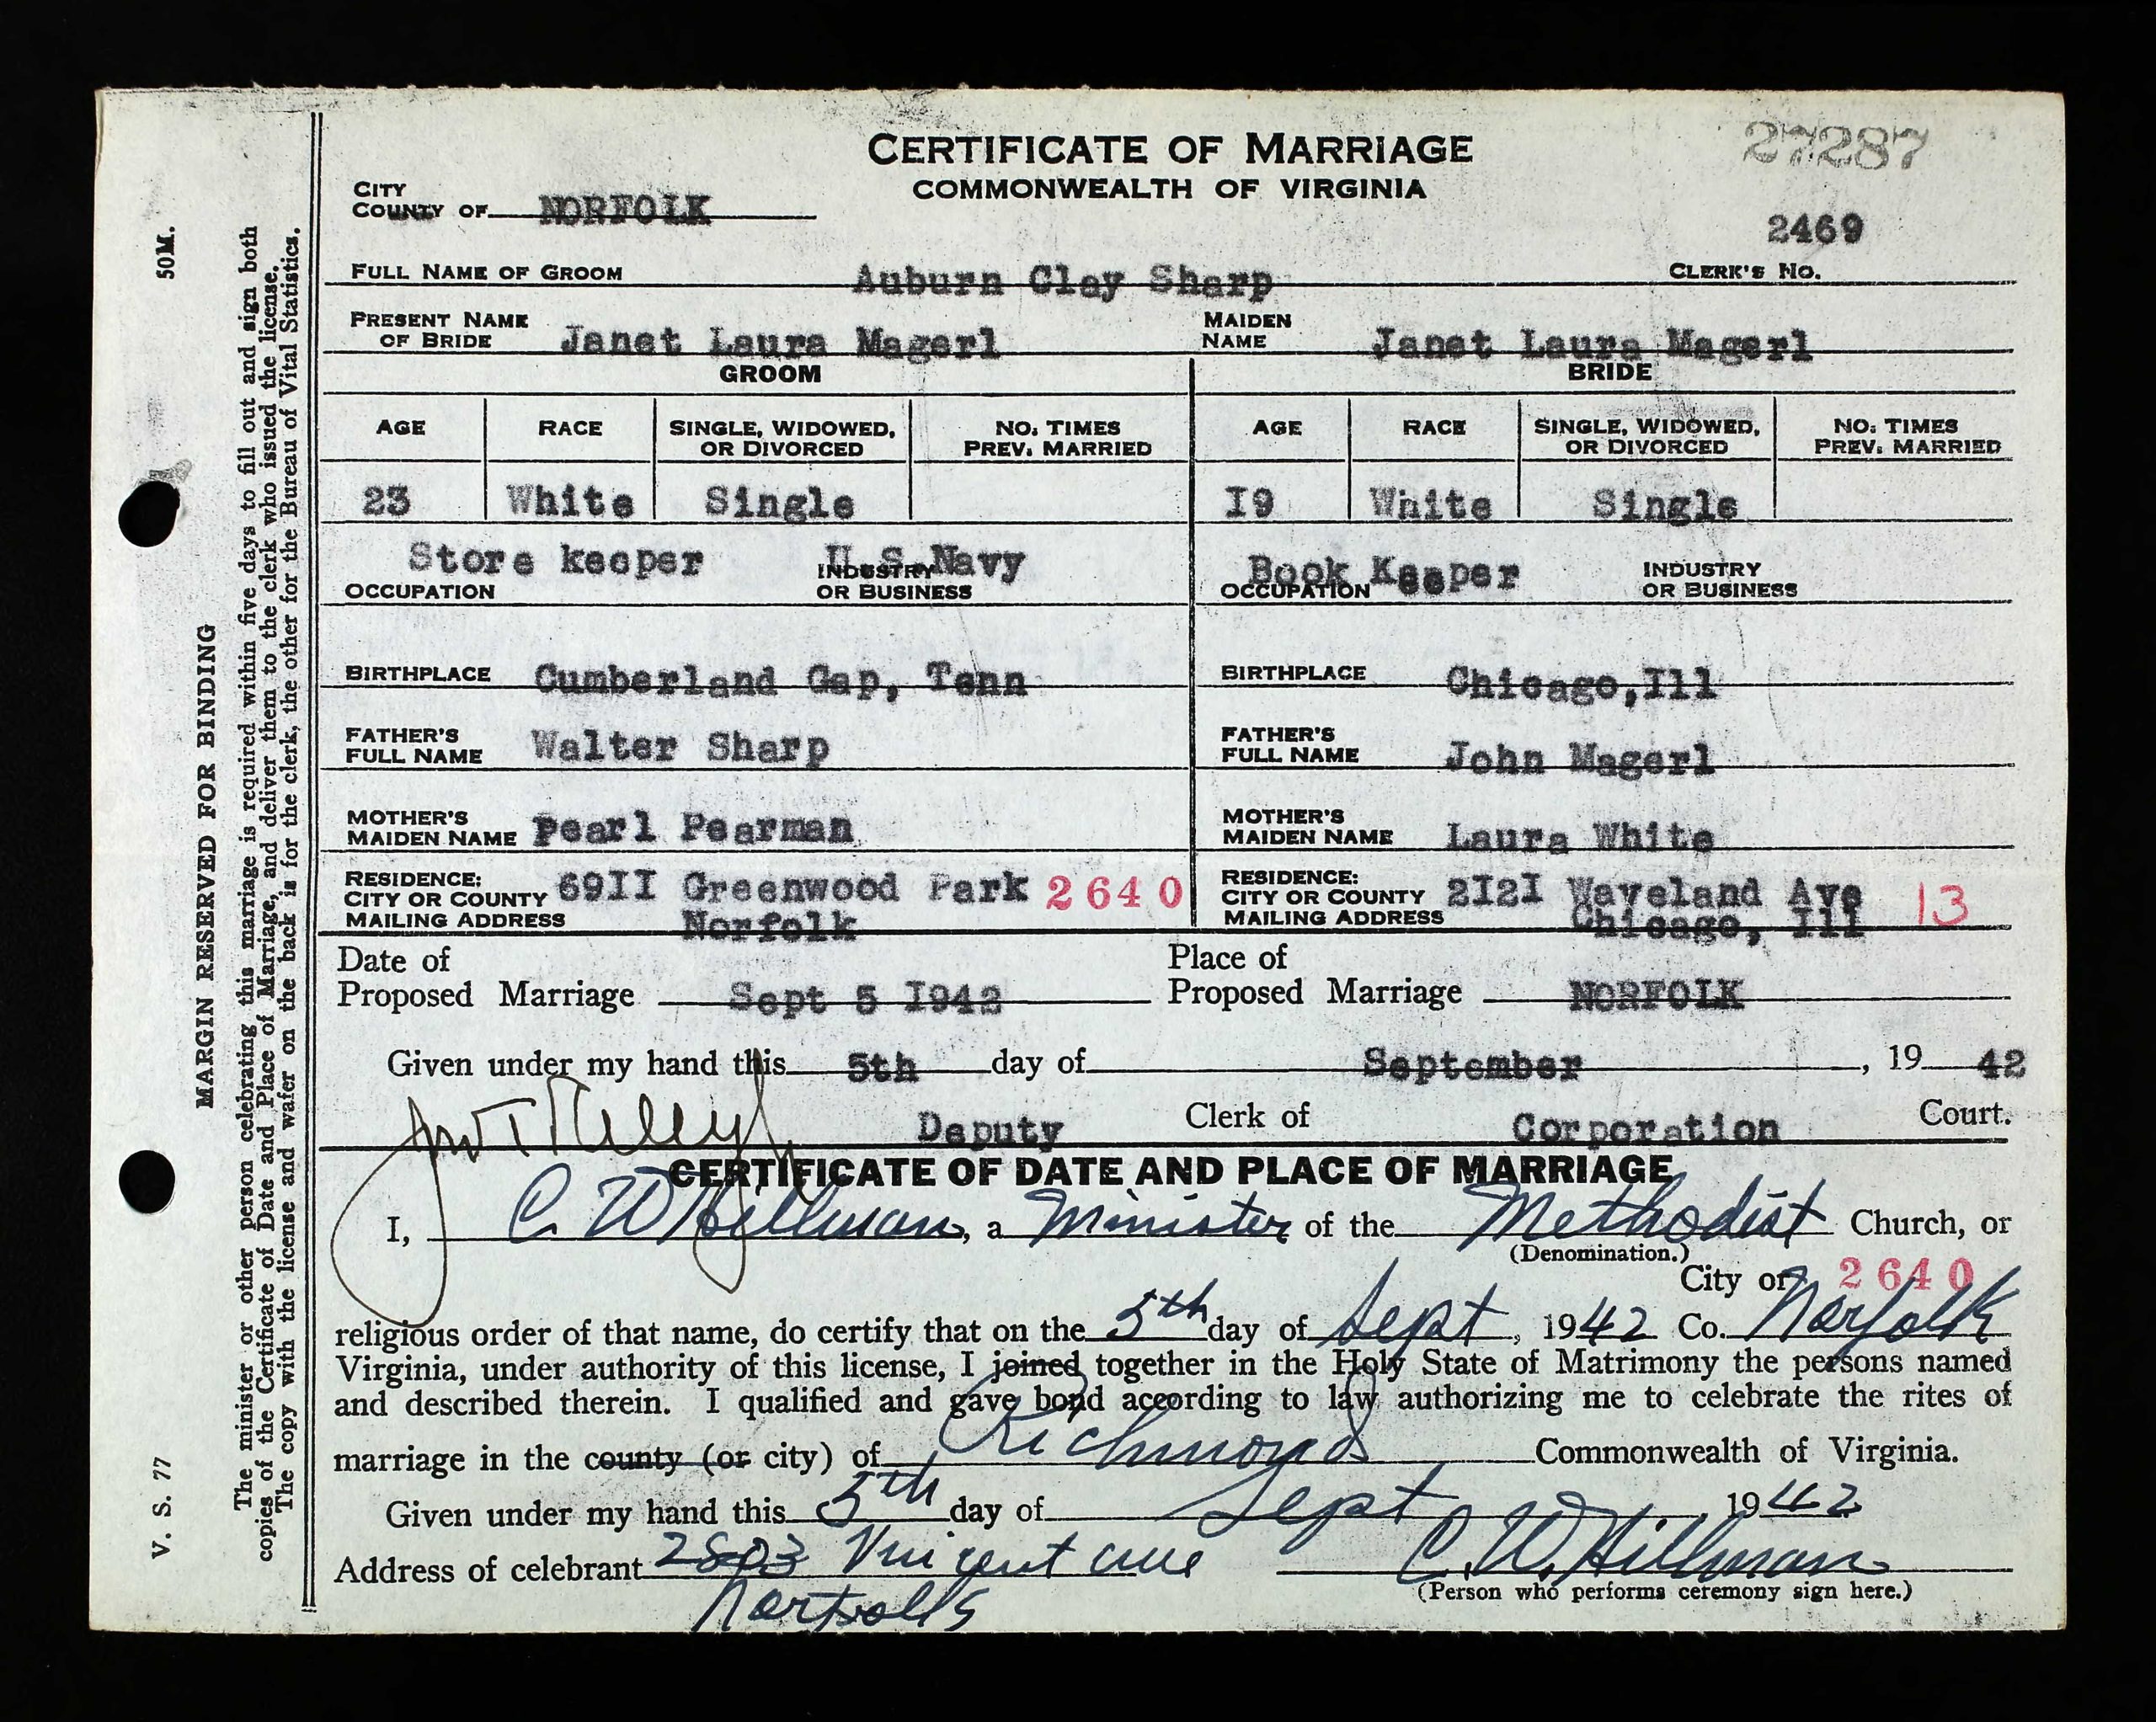 CERTIFICATE OF MARRIAGE
27287
COMMONWEALTH OF VIRGINIA
CITY
COUNTY OF NORFOLK
2469
FULL NAME OF GROOM Auburn Clay Sharp CLERK'S No.
PRESENT NAME OF BRIDE Janet Laura Magerl MAIDEN NAME Janet Laura Magerl
GROOM BRIDE
AGE RACE SINGLE, WIDOWED, OR DIVORCED NO. TIMES PREV. MARRIED AGE RACE SINGLE, WIDOWED, OR DIVORCED NO. TIMES PREV. MARRIED
23 White Single I9 White Single
OCCUPATION Store keeper INDUSTRY OR BUSINESS U.S.Navy OCCUPATION Book Keeper INDUSTRY OR BUSINESS
BIRTHPLACE Cumberland Gap, Tenn BIRTHPLACE Chicago,Ill
FATHER'S FULL NAME Walter Sharp FATHER'S FULL NAME John Magerl
MOTHER'S MAIDEN NAME Pearl Pearman MOTHER'S MAIDEN NAME Laura White
RESIDENCE: CITY OR COUNTY MAILING ADDRESS 69II Greenwood Park 2640 Norfolk RESIDENCE: CITY OR COUNTY MAILING ADDRESS 2I2I Waveland Ave Chicago, Ill 13
Date of Proposed Marriage Sept 5 I942 Place of Proposed Marriage NORFOLK
Given under my hand this 5th day of September, 19 42
Deputy Clerk of Corporation Court.
CERTIFICATE OF DATE AND PLACE OF MARRIAGE
I, C. W Hillman, a Minister of the Methodist Church, or
(Denomination.)
City or 2640
religious order of that name, do certify that on the 5th day of Sept, 1942 Co. Norfolk
Virginia, under authority of this license, I joined together in the Holy State of Matrimony the persons named
and described therein. I qualified and gave bond according to law authorizing me to celebrate the rites of
marriage in the county (or city) of Richmond Commonwealth of Virginia.
Given under my hand this 5th day of Sept, 1942
Address of celebrant 2803 Vincent ave C. W. Hillman
(Person who performs ceremony sign here.)
MARGIN RESERVED FOR BINDING
The minister or other person celebrating this marriage is required within five days to fill out and sign both
copies of the Certificate of Date and Place of Marriage, and deliver them to the clerk who issued the license.
The copy with the license and wafer on the back is for the clerk, the other for the Bureau of Vital Statistics.
V. S. 77 50M.